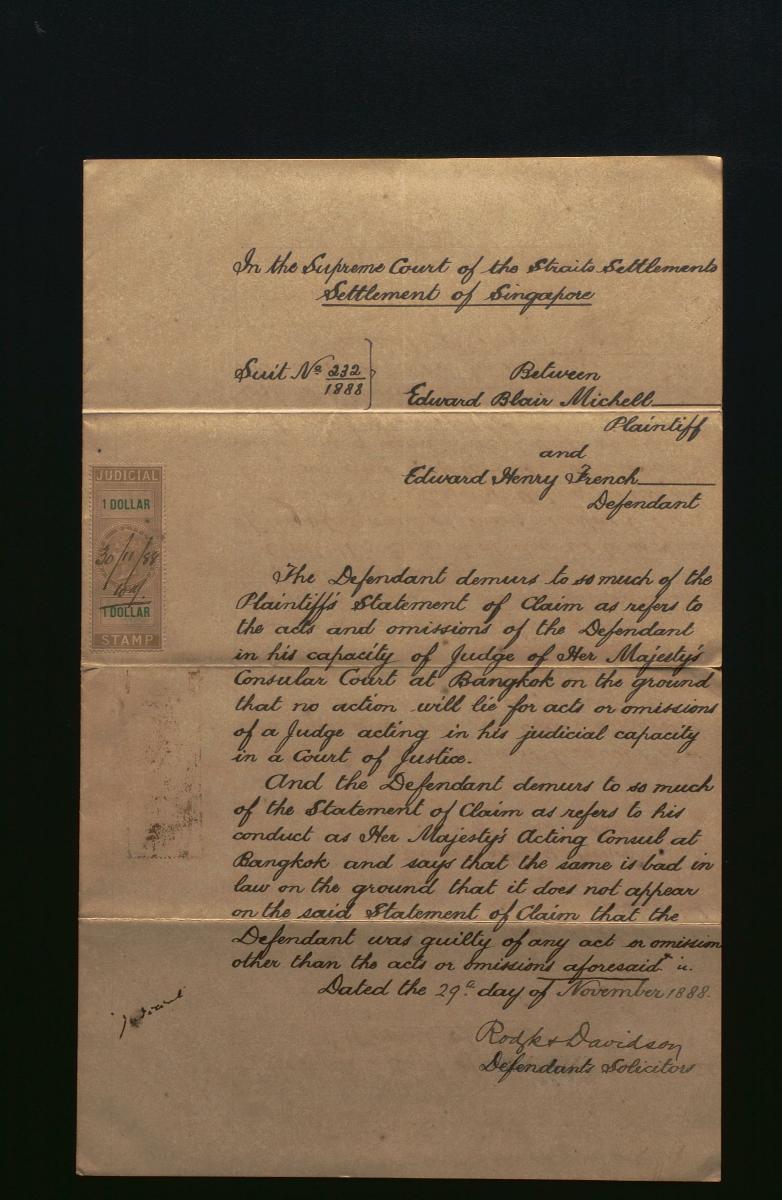 In the Supreme Court of the Straits Settlements
Settlement of Singapore
Suit No 232/1888
Between
Edward Blair Michell
Plaintiff
and
Edward Henry French
Defendant
JUDICIAL
1 DOLLAR
30/11/88
1 DOLLAR
STAMP
The Defendant demurs to so much of the
Plaintiff's Statement of Claim as refers to
the acts and omissions of the Defendant
in his capacity of Judge of Her Majesty's
Consular Court at Bangkok on the ground
that no action will lie for acts or omissions
of a Judge acting in his judicial capacity
in a Court of Justice.
And the Defendant demurs to so much
of the Statement of Claim as refers to his
conduct as Her Majesty's Acting Consul at
Bangkok and says that the same is bad in
law on the ground that it does not appear
on the said Statement of Claim that the
Defendant was guilty of any act or omission
other than the acts or omissions aforesaid
Dated the 29th day of November 1888.
Davidson
Defendants Solicitors